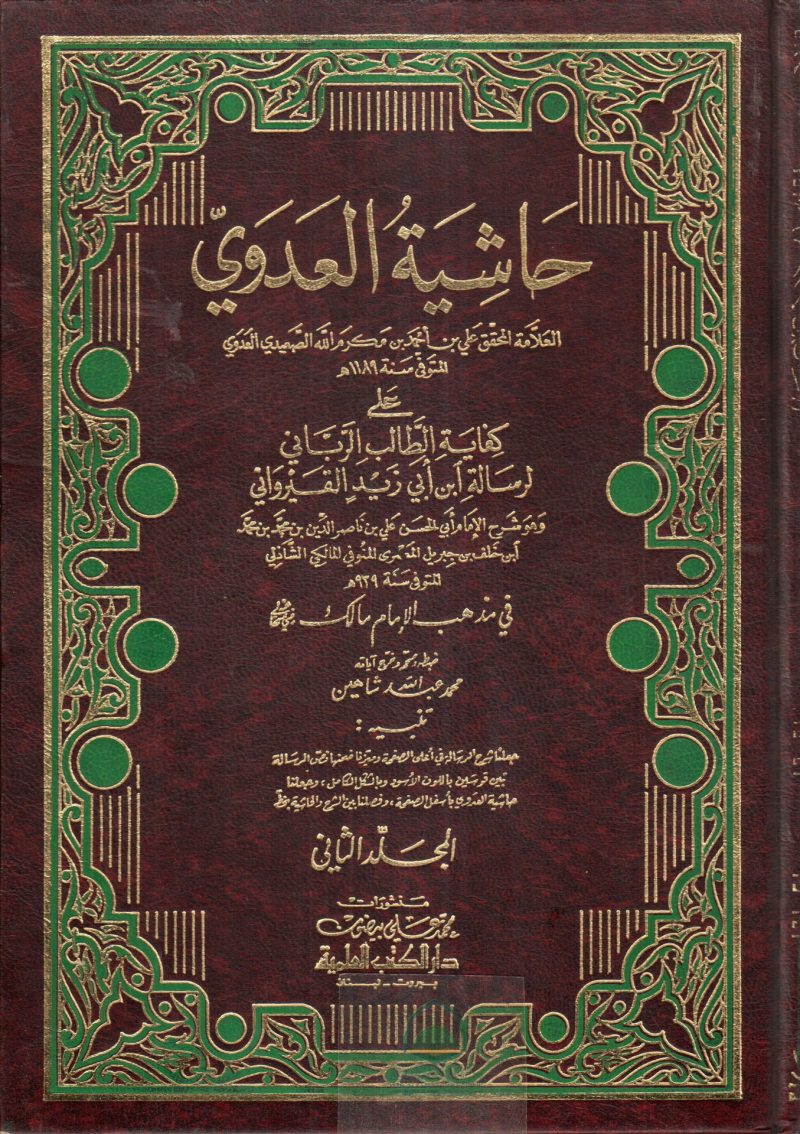 حَاشِيَةُ العَدَوَيّ
العَلّامَة المحقّق علي بن أحمد بن مَكرم الله الصَّعِيدي العَدَوي
المتوفى سَنة ١١٨٩هـ
عَلى
كفاية الطَّالب الرَّبَّاني
لرسَالة ابن أبي زَيْدٍ القَيْرواني
وهو شرح الإمام أبي الحسن علي بن ناصر الدّين بن محمّد بن محمّد
ابن خلف بن جبريل المصري المنوفي المالكي الشّاذلي
المتوفى سَنَة ٩٣٩هـ
في مذهب الإمام مالك
ضبطه وصحّحه وخرّج آياته
محمد عبد الله شاهين
تنبيه :
جعلنا شرح الرسالة في أعلى الصفحة وميّزنا ضمنها نصّ الرسالة
بَين قوسين باللون الأسود وبالشكل الكامل ، وجعلنا
حاشية العدوي بأسفل الصفحة ، وفصلنا بين الشرح والحاشية بخطّ
المجَلّد الثاني
منشورات
محمد علي بيضون
دار الكتب العلمية
بيروت - لبنان